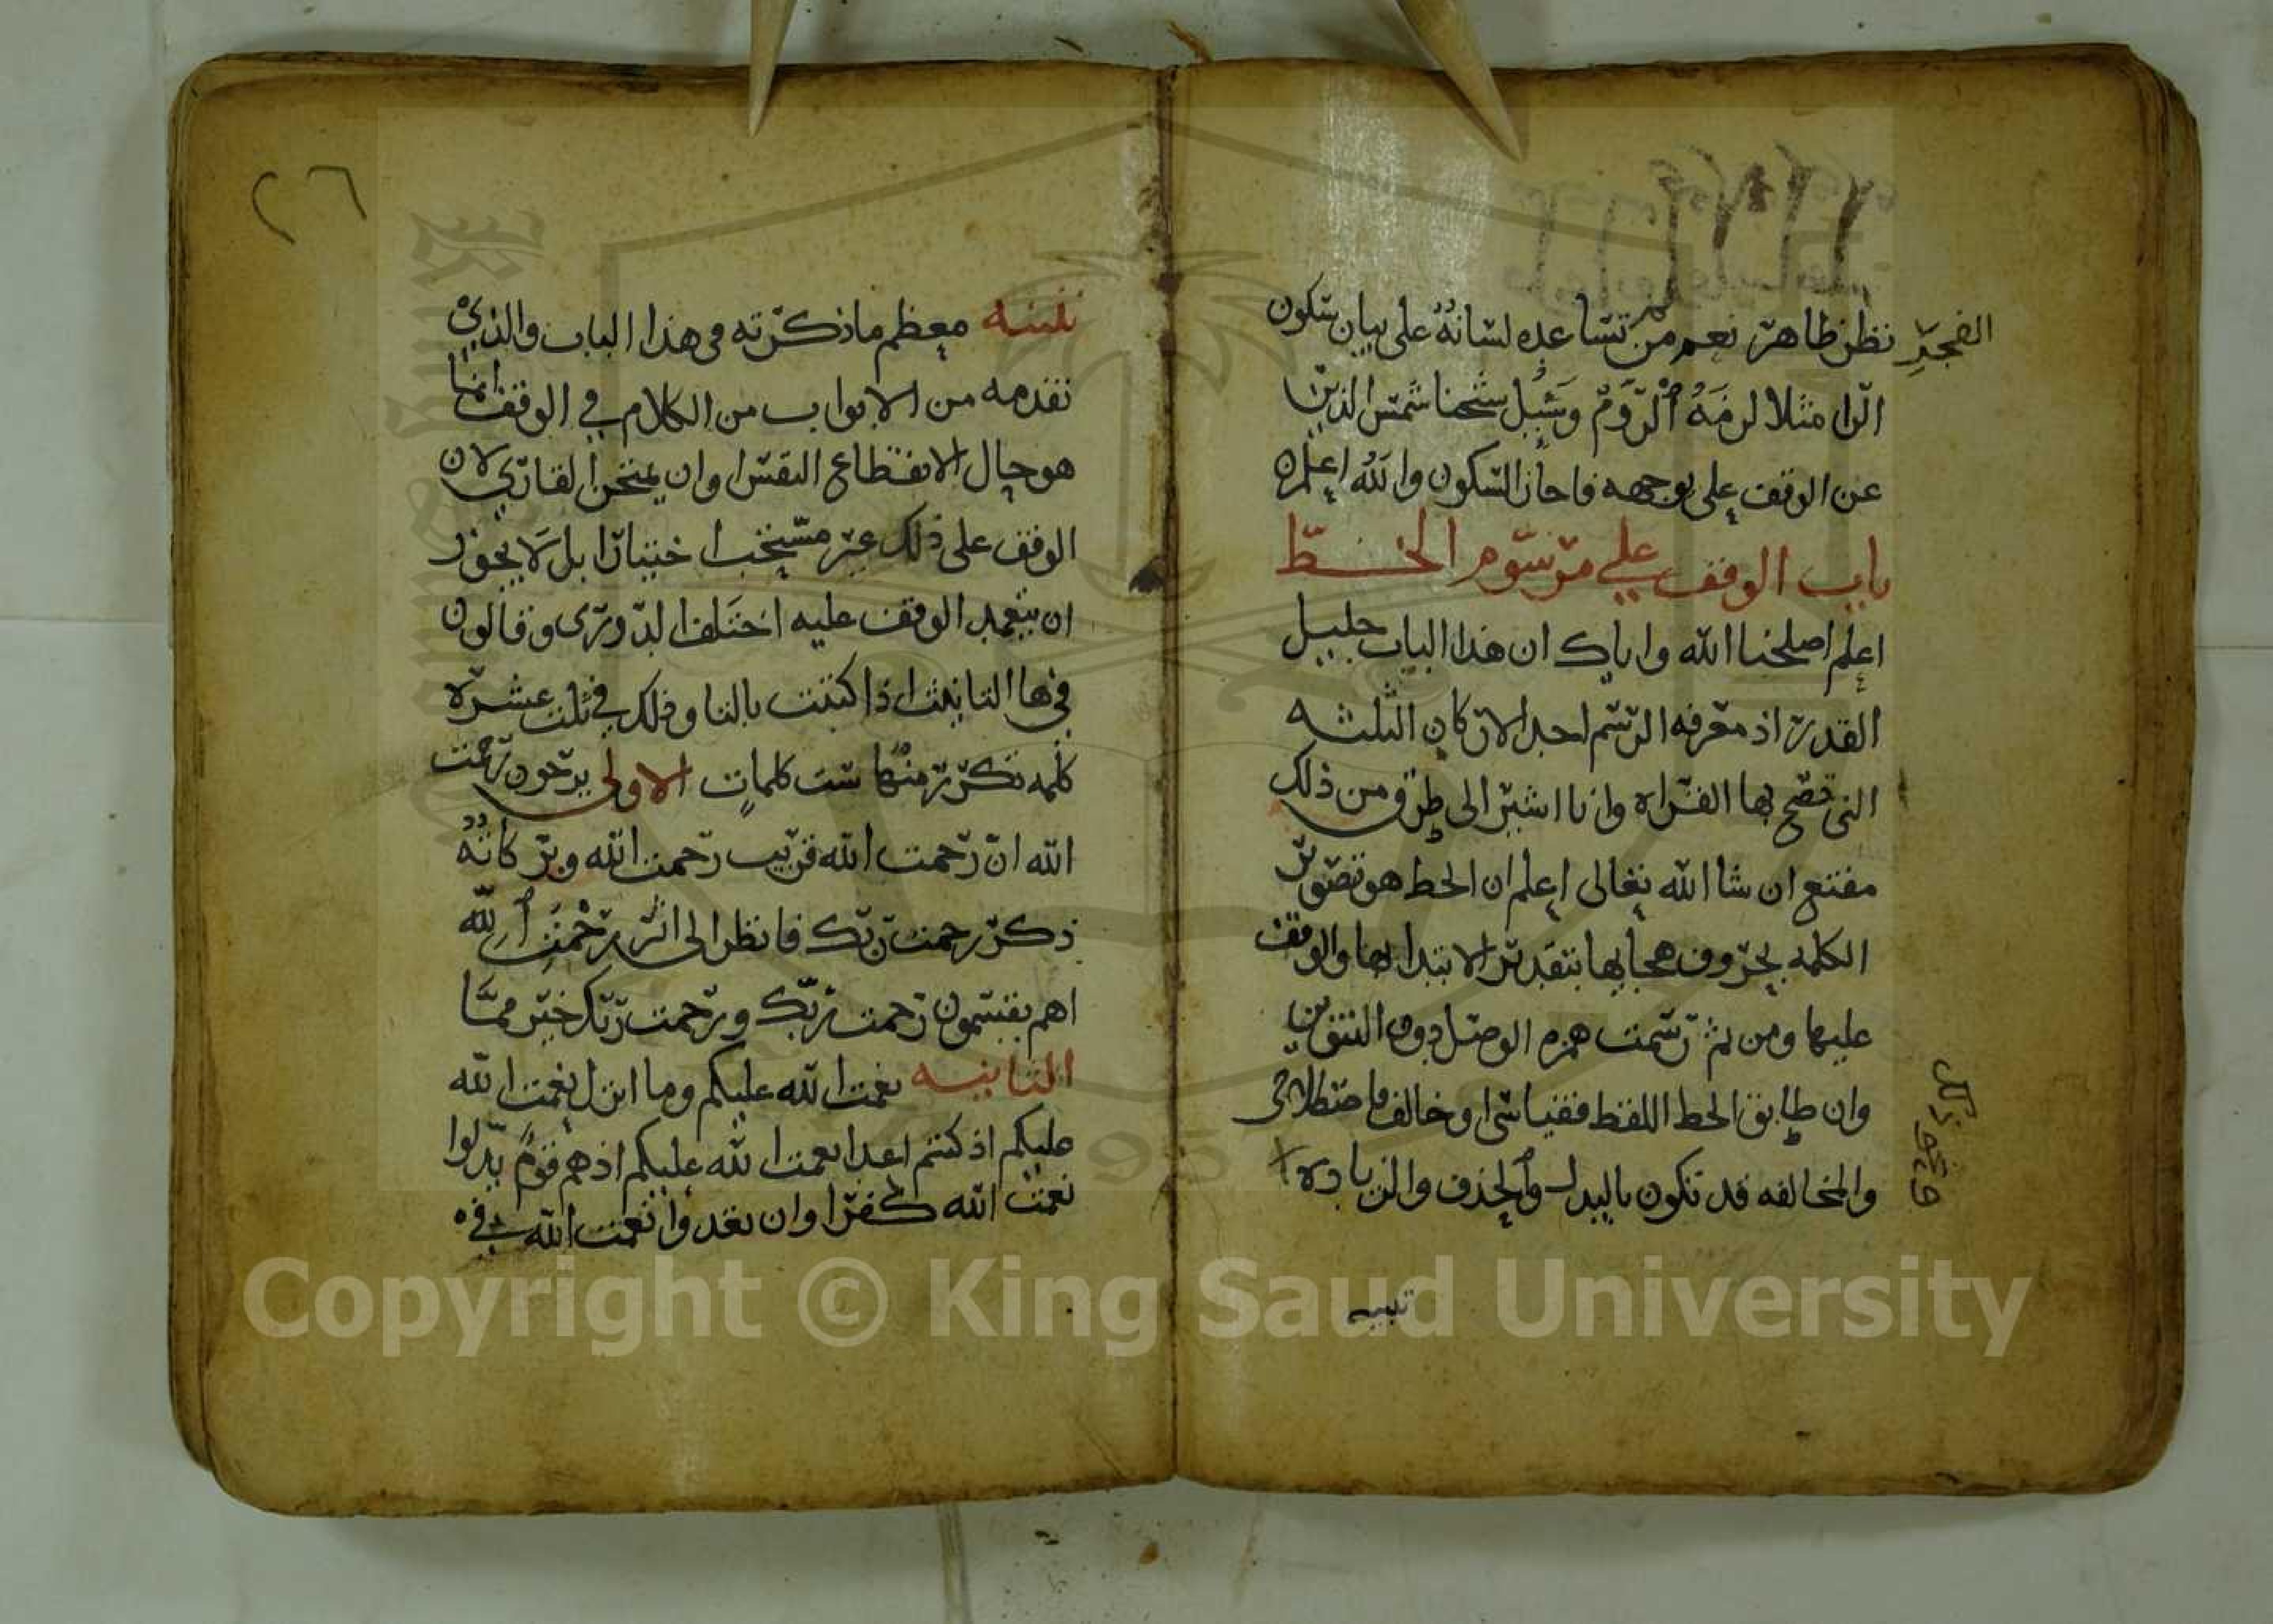 الفجر نظر ظاهر نعم من تساعده لسانه على بيان سكون
الرا مثلا لزمه الروم وسئل شيخنا شمس الدين
عن الوقف على يوجهه فاجاز السكون والله اعلم
باب الوقف علي مرسوم الخط
اعلم اصلحنا الله واياك ان هذا الباب جليل
القدر اذ معرفه الرسم احد الاركان الثلثه
التي تصح بها القراه وانا اشير الى طرق من ذلك
مقنع ان شا الله تعالى اعلم ان الخط هو تصوير
الكلمه بحروف هجايها بتقدير الابتدا بها والوقف
عليها ومن ثم رسمت همزه الوصل دون التنوين
وان طابق الخط اللفظ فقياسي او خالف فاصطلاحي
والمخالفه قد تكون بالبدل والحذف والزياده
تنبيه
٢٦
تنبيه معظم ما ذكرته في هذا الباب والذي
تقدمه من الابواب من الكلام في الوقف انما
هو حال الانقطاع النفس او ان يمتحن القاري لان
الوقف على ذلك غير مستحب اختيارا بل لا يجوز
ان يتعمد الوقف عليه اختلف الدوري وقالون
في ها التانيث اذا كتبت بالتا وذلك في ثلث عشره
كلمه تكرر منها ست كلمات الاولى يرجون رحمت
الله ان رحمت الله قريب رحمت الله وبركاته
ذكر رحمت ربك فانظر الى اثر رحمت الله
اهم يقسمون رحمت ربك ورحمت ربك خير مما
الثانيه نعمت الله عليكم وما انزل نعمت الله
عليكم اذ كنتم اعدا نعمت الله عليكم اذ هم قوم بدلوا
نعمت الله كفرا وان تعدوا نعمت الله
Copyright © King Saud University